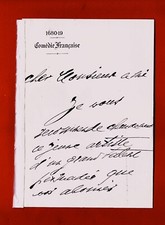 1680-19
Comédie Française
cher Monsieur
Je vous
recommande
ce jeune artiste
d'un grand talent
persuadé que
vos